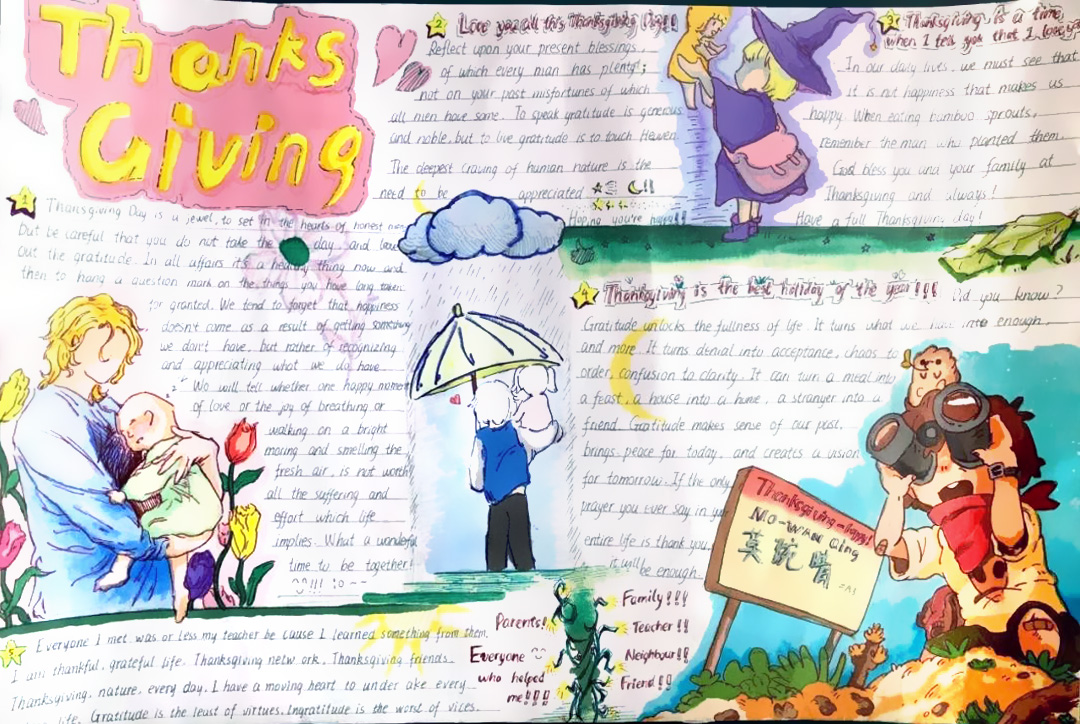 Thanks
Giving
1
Thanksgiving Day is a jewel, to set in the hearts of honest men
But be careful that you do not take the day, and leave
out the gratitude. In all affairs it's a healthy thing now and
then to hang a question mark on the things you have long taken
for granted. We tend to forget that happiness
doesn't come as a result of getting something
we don't have, but rather of recognizing
and appreciating what we do have.
We will tell whether one happy moment
of love or the joy of breathing or
walking on a bright
moring and smelling the
fresh air, is not worth
all the suffering and
effort which life
implies. What a wonderful
time to be together!
2
Love you all this Thanksgiving Day!!
Reflect upon your present blessings
of which every man has plenty;
not on your past misfortunes of which
all men have some. To speak gratitude is generous
and noble, but to live gratitude is to touch Heaven.
The deepest craving of human nature is the
need to be appreciated !!
Hoping you're happy!!
3
Thanksgiving is a time
when I tell you that I love you
In our daily lives, we must see that
it is not happiness that makes us
happy. When eating bamboo sprouts,
remember the man who planted them.
God bless you and your family at
Thanksgiving and always!
Have a full Thanksgiving day!
4
Thanksgiving is the best holiday of the year!!! Did you know?
Gratitude unlocks the fullness of life. It turns what we have into enough,
and more. It turns denial into acceptance, chaos to
order, confusion to clarity. It can turn a meal into
a feast, a house into a home, a stranger into a
friend. Gratitude makes sense of our past,
brings peace for today, and creates a vision
for tomorrow. If the only
prayer you ever say in your
entire life is thank you,
it will be enough
Thanksgiving-happy!
Mo-wan Qing
莫琬情
5
Everyone I met was or less my teacher be cause I learned something from them.
I am thankful, grateful life. Thanksgiving netw ork, Thanksgiving friends.
Thanksgiving, nature, every day. I have a moving heart to under ake every
life. Gratitude is the least of virtues. Ingratitude is the worst of vices.
Parents!
Everyone
who helped
me!!!!
Family!!!
Teacher!!
Neighbour!!
Friend!!